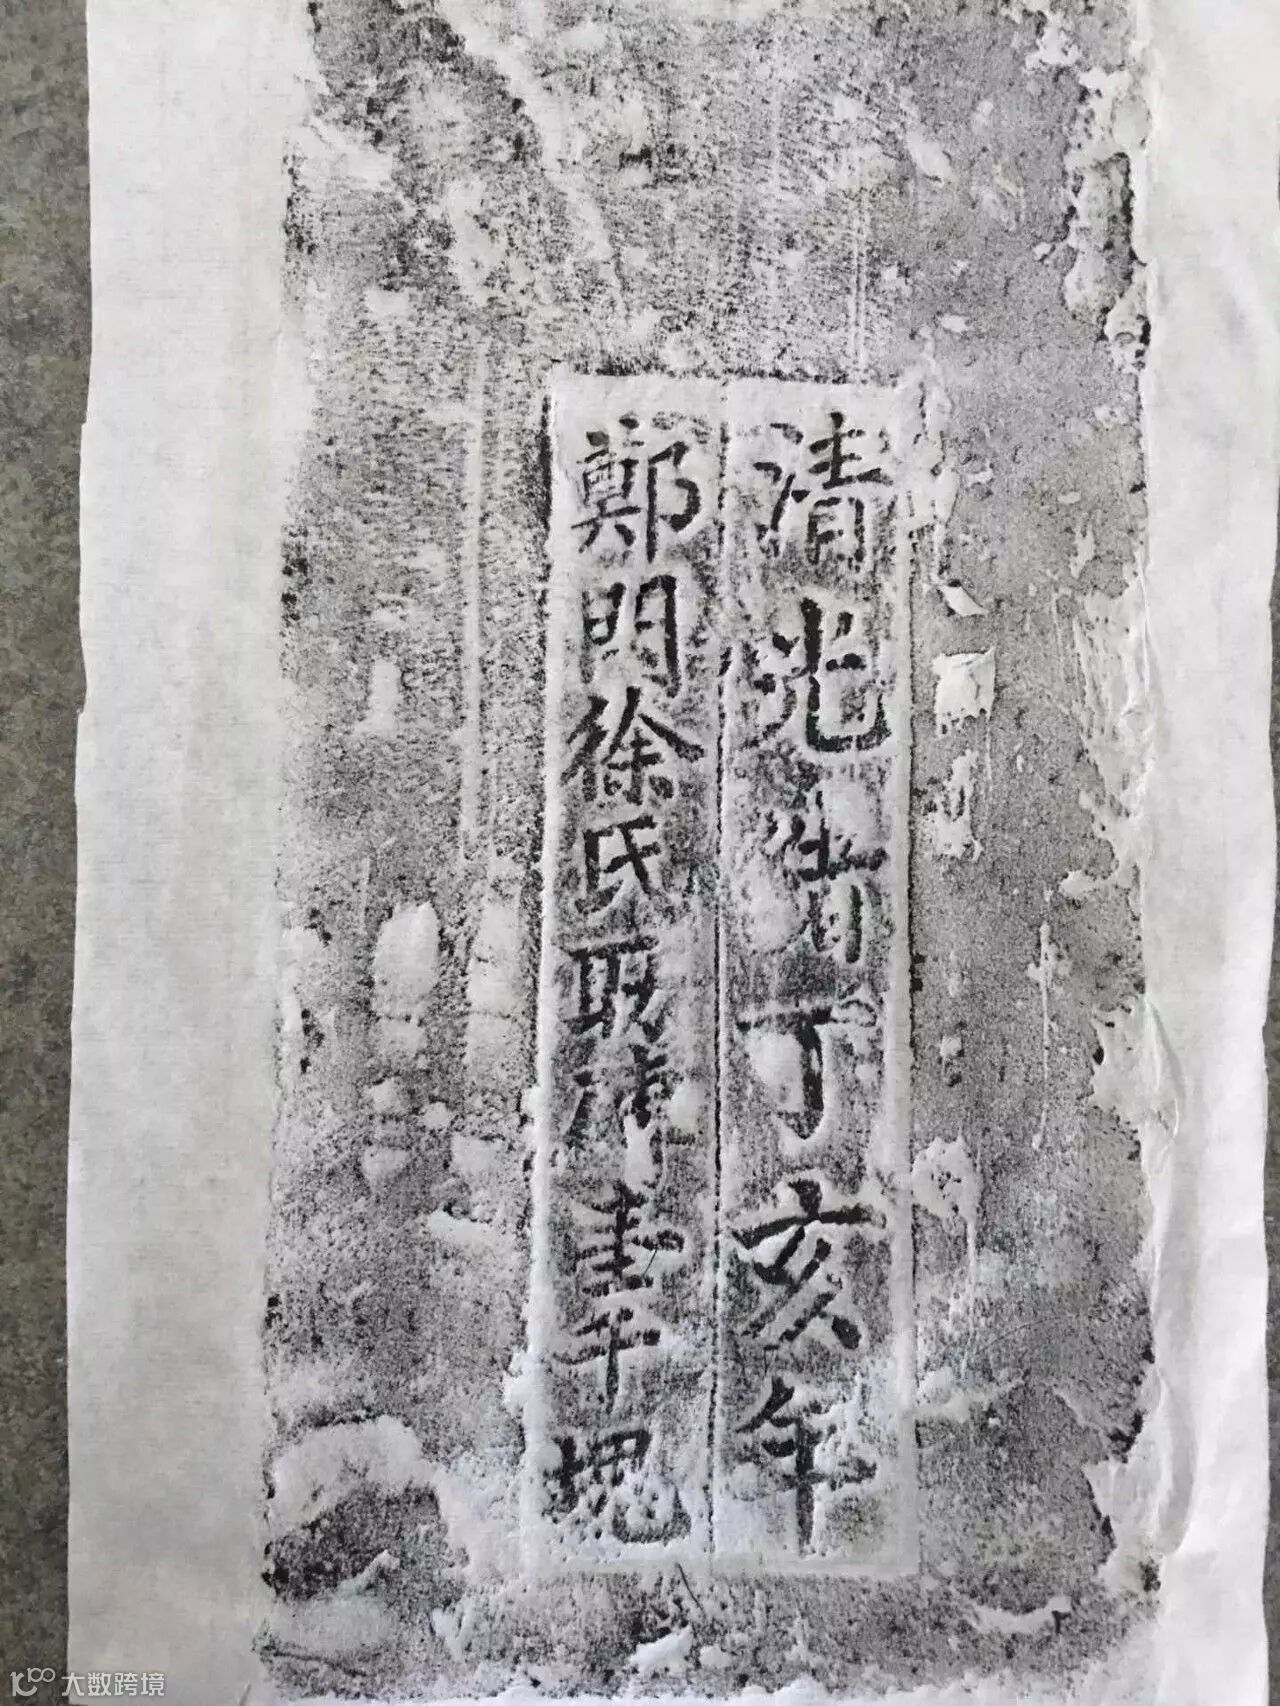 清光緒丁亥年
鄭門徐氏取壹千塊
大数跨境